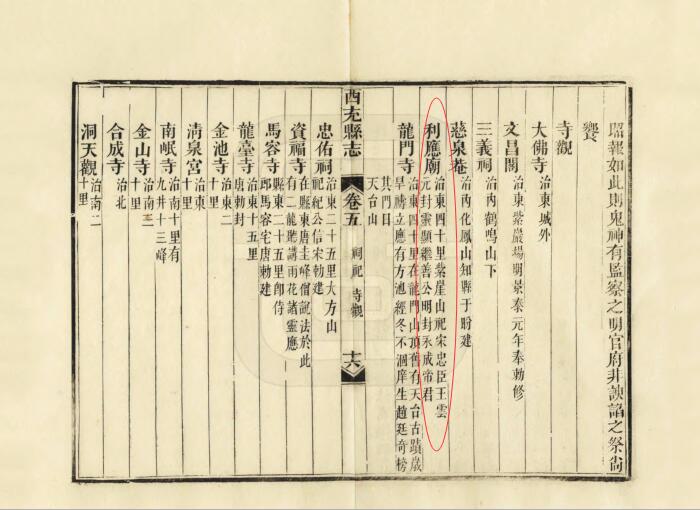 昭報如此則鬼神有監察之明官府非諛諂之祭尙
饗
寺觀
大佛寺 治東城外
文昌閣 治東紫巖場明景泰元年奉勅修
三義祠 治內鶴鳴山下
慈泉菴 治內化鳳山知縣于盼建
利應廟 治東四十里紫崖山祀宋忠臣王雲
元封靈顯繼善公明封永成帝君
龍門寺 治東四十里在龍門山頂舊有天台古蹟歲
旱禱立應有方池經冬不涸庠生趙廷奇榜
其門曰
天台山
西充縣志 卷五 祠祀 寺觀 十六
忠佑祠 治東二十五里大方山
祀紀公信宋勅建
資福寺 在縣東唐圭峰僧說法於此
有二龍聽講雨花諸靈應
馬容寺 縣東二十五里卽侍
郎馬容宅唐勅建
龍臺寺 治東十五里
唐勅封
金池寺 治東二
十里
淸泉宮 治東
十里
南岷寺 治南十里有
九井十三峰
金山寺 治南二
十里
合成寺 治北
洞天觀 治南二
十里